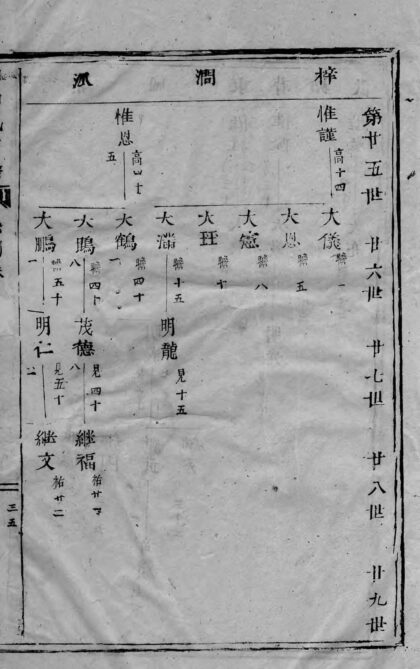 梓澗派
第廿五世
廿六世
廿七世
廿八世
廿九世
惟謹
高十四
惟恩
高四十五
大儀
大恩
五
大憲
八
大玨
十
大潘
十五
大鶴
四十一
大鵰
四十八
大鵬
五十一
明龍
見十五
茂德
見四十八
明仁
見五十二
繼福
祐廿四
繼文
祐廿二
三五